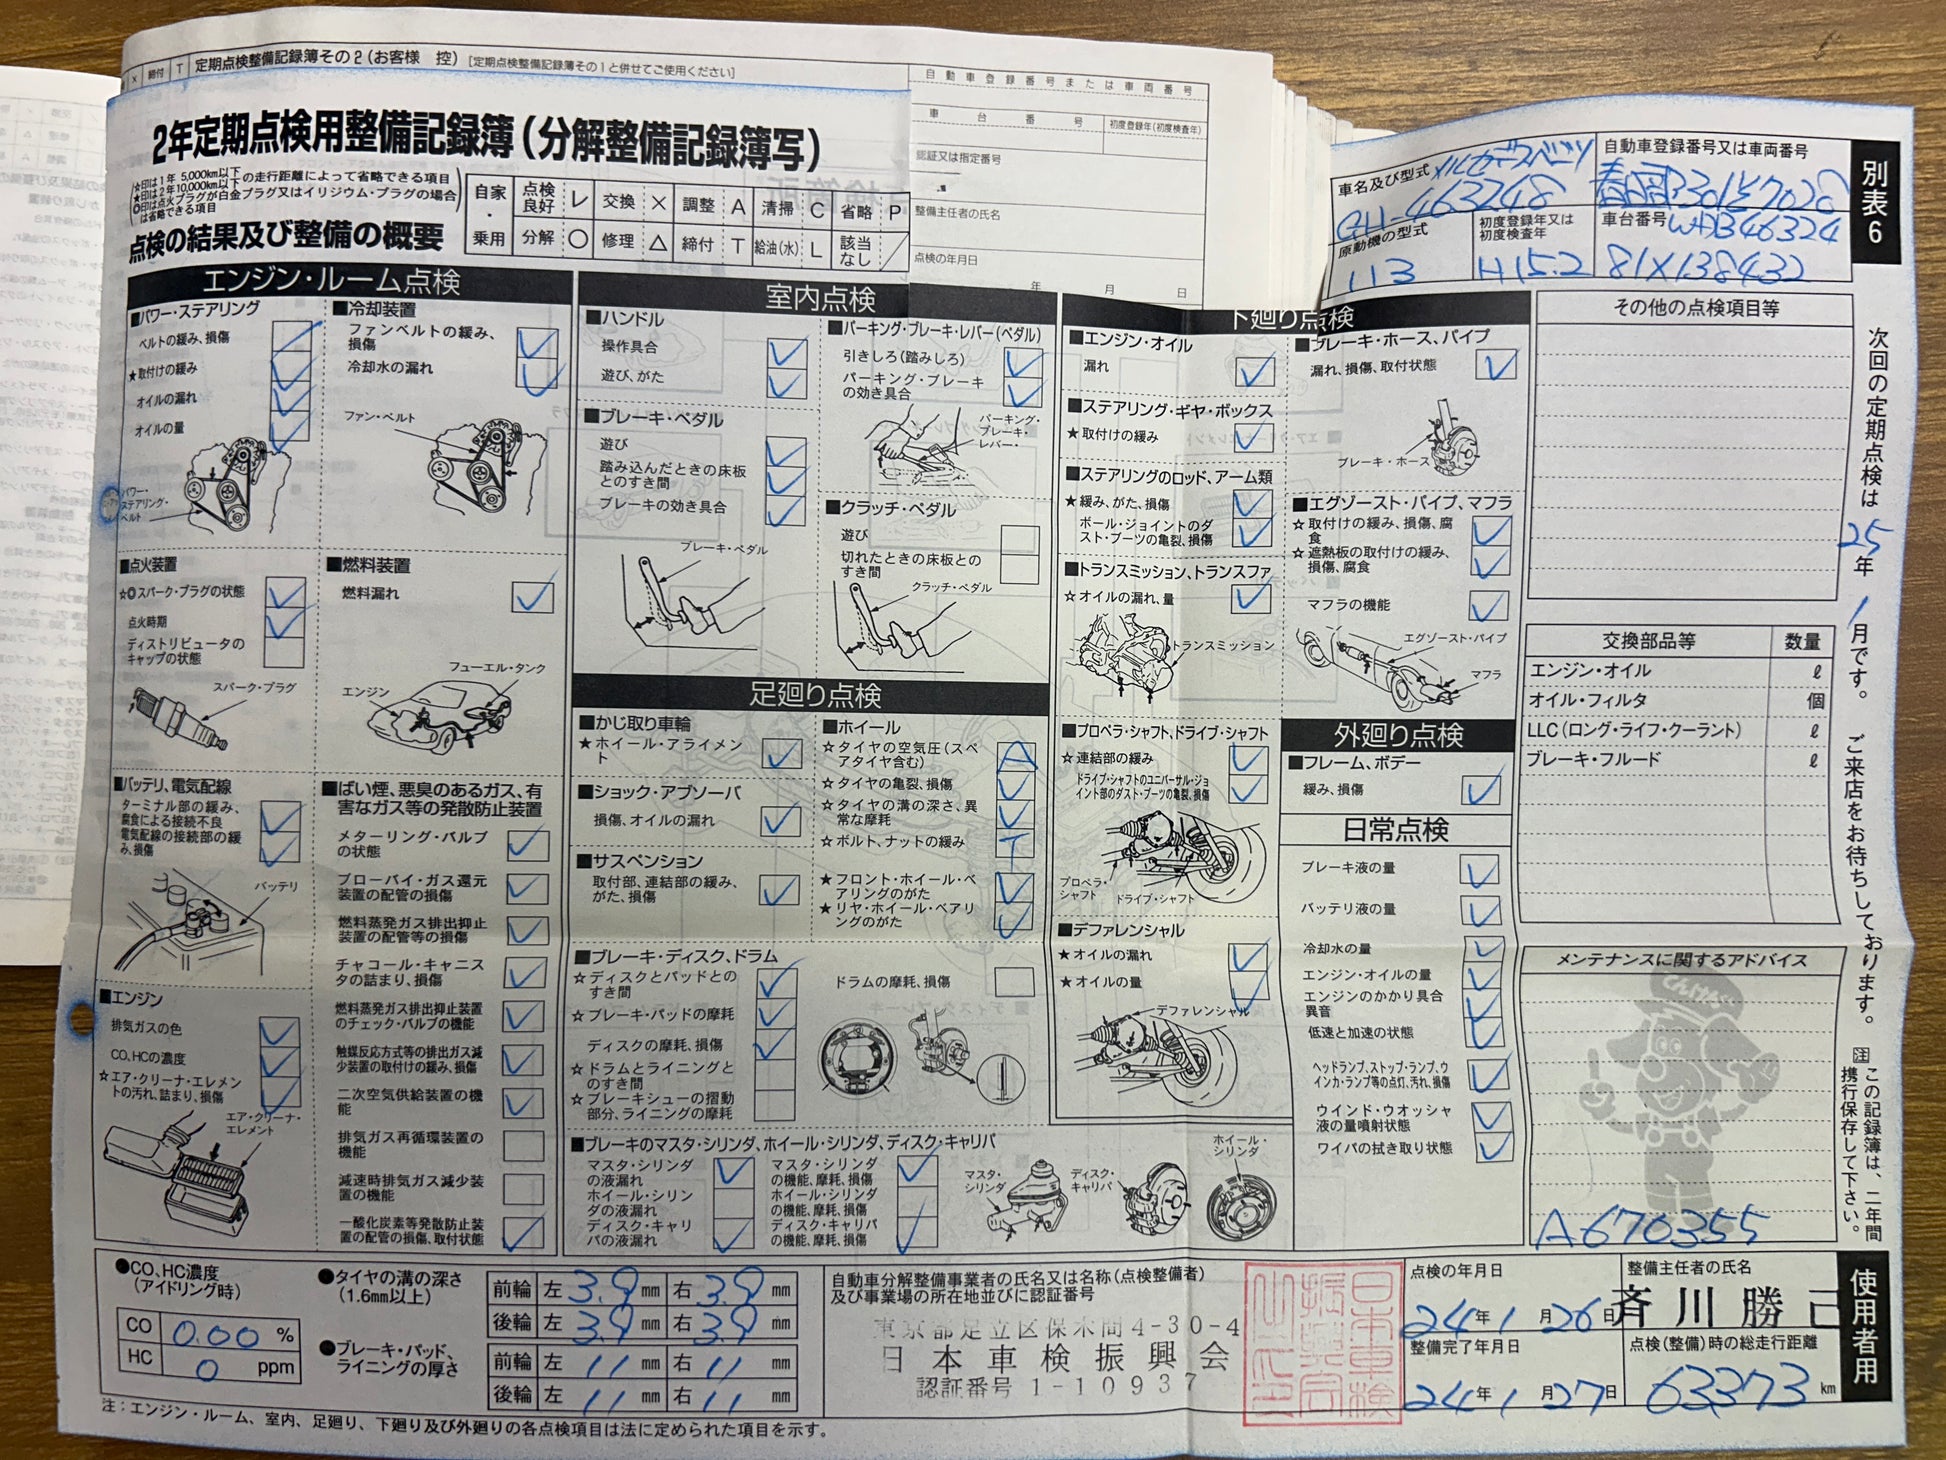 × 締付 T 定期点検整備記録簿その2(お客様 控)[定期点検整備記録簿その1と併せてご使用ください]
自動車登録番号または車両番号
車台番号
初度登録年(初度検査年)
認証又は指定番号
整備主任者の氏名
点検の年月日
年 月 日
2年定期点検用整備記録簿(分解整備記録簿写)
☆印は1年 5,000km以下の走行距離によって省略できる項目
★印は2年10,000km以下
◎印は点火プラグが白金プラグ又はイリジウム・プラグの場合は省略できる項目
点検の結果及び整備の概要
自家・乗用
点検良好 レ 交換 × 調整 A 清掃 C 省略 P
分解 ○ 修理 △ 締付 T 給油(水) L 該当なし /
別表6
車名及び型式 メルセデスベンツ
GH-463248
自動車登録番号又は車両番号
原動機の型式
113
初度登録年又は初度検査年
H15.2
車台番号 WDB46324
81X138432
エンジン・ルーム点検
■パワー・ステアリング
ベルトの緩み、損傷
★取付けの緩み
オイルの漏れ
オイルの量
パワー・ステアリング・ベルト
■冷却装置
ファンベルトの緩み、損傷
冷却水の漏れ
ファン・ベルト
■点火装置
☆◎スパーク・プラグの状態
点火時期
ディストリビュータのキャップの状態
スパーク・プラグ
■燃料装置
燃料漏れ
フューエル・タンク
エンジン
■バッテリ、電気配線
ターミナル部の緩み、腐食による接続不良
電気配線の接続部の緩み、損傷
バッテリ
■ばい煙、悪臭のあるガス、有害なガス等の発散防止装置
メターリング・バルブの状態
ブローバイ・ガス還元装置の配管の損傷
燃料蒸発ガス排出抑止装置の配管等の損傷
チャコール・キャニスタの詰まり、損傷
燃料蒸発ガス排出抑止装置のチェック・バルブの機能
触媒反応方式等の排出ガス減少装置の取付けの緩み、損傷
二次空気供給装置の機能
排気ガス再循環装置の機能
減速時排気ガス減少装置の機能
一酸化炭素等発散防止装置の配管の損傷、取付状態
■エンジン
排気ガスの色
CO、HCの濃度
☆エア・クリーナ・エレメントの汚れ、詰まり、損傷
エア・クリーナ・エレメント
室内点検
■ハンドル
操作具合
遊び、がた
■ブレーキ・ペダル
遊び
踏み込んだときの床板とのすき間
ブレーキの効き具合
ブレーキ・ペダル
■パーキング・ブレーキ・レバー(ペダル)
引きしろ(踏みしろ)
パーキング・ブレーキの効き具合
パーキング・ブレーキ・レバー・
■クラッチ・ペダル
遊び
切れたときの床板とのすき間
クラッチ・ペダル
足廻り点検
■かじ取り車輪
★ホイール・アライメント
■ショック・アブソーバ
損傷、オイルの漏れ
■サスペンション
取付部、連結部の緩み、がた、損傷
■ホイール
☆タイヤの空気圧(スペアタイヤ含む) A
☆タイヤの亀裂、損傷
☆タイヤの溝の深さ、異常な摩耗
☆ボルト、ナットの緩み T
★フロント・ホイール・ベアリングのがた
★リヤ・ホイール・ベアリングのがた
■ブレーキ・ディスク、ドラム
☆ディスクとパッドとのすき間
☆ブレーキ・パッドの摩耗
ディスクの摩耗、損傷
☆ドラムとライニングとのすき間
☆ブレーキシューの摺動部分、ライニングの摩耗
ドラムの摩耗、損傷
■ブレーキのマスタ・シリンダ、ホイール・シリンダ、ディスク・キャリパ
マスタ・シリンダの液漏れ
ホイール・シリンダの液漏れ
ディスク・キャリパの液漏れ
マスタ・シリンダの機能、摩耗、損傷
ホイール・シリンダの機能、摩耗、損傷
ディスク・キャリパの機能、摩耗、損傷
マスタ・シリンダ
ディスク・キャリパ
ホイール・シリンダ
下廻り点検
■エンジン・オイル
漏れ
■ステアリング・ギヤ・ボックス
★取付けの緩み
■ステアリングのロッド、アーム類
★緩み、がた、損傷
ボール・ジョイントのダスト・ブーツの亀裂、損傷
■トランスミッション、トランスファ
☆オイルの漏れ、量
トランスミッション
■プロペラ・シャフト、ドライブ・シャフト
☆連結部の緩み
ドライブ・シャフトのユニバーサル・ジョイント部のダスト・ブーツの亀裂、損傷
プロペラ・シャフト
ドライブ・シャフト
■デファレンシャル
★オイルの漏れ
★オイルの量
デファレンシャル
■ブレーキ・ホース、パイプ
漏れ、損傷、取付状態
ブレーキ・ホース
■エグゾースト・パイプ、マフラ
☆取付けの緩み、損傷、腐食
☆遮熱板の取付けの緩み、損傷、腐食
マフラの機能
エグゾースト・パイプ
マフラ
外廻り点検
■フレーム、ボデー
緩み、損傷
日常点検
ブレーキ液の量
バッテリ液の量
冷却水の量
エンジン・オイルの量
エンジンのかかり具合異音
低速と加速の状態
ヘッドランプ、ストップ・ランプ、ウインカ・ランプ等の点灯、汚れ、損傷
ウインド・ウオッシャ液の量噴射状態
ワイパの拭き取り状態
その他の点検項目等
交換部品等 数量
エンジン・オイル ℓ
オイル・フィルタ 個
LLC(ロング・ライフ・クーラント) ℓ
ブレーキ・フルード ℓ
メンテナンスに関するアドバイス
てんけんくん
A670355
次回の定期点検は25年1月です。ご来店をお待ちしております。
注 この記録簿は、二年間携行保存して下さい。
使用者用
●CO、HC濃度(アイドリング時)
CO 0.00 %
HC 0 ppm
●タイヤの溝の深さ(1.6mm以上)
前輪 左 3.9 mm 右 3.9 mm
後輪 左 3.9 mm 右 3.9 mm
●ブレーキ・パッド、ライニングの厚さ
前輪 左 11 mm 右 11 mm
後輪 左 11 mm 右 11 mm
自動車分解整備事業者の氏名又は名称(点検整備者)及び事業場の所在地並びに認証番号
東京都足立区保木間4-30-4
日本車検振興会
認証番号 1-10937
点検の年月日
24年1月26日
整備完了年月日
24年1月27日
整備主任者の氏名
斉川勝己
点検(整備)時の総走行距離
63373 km
注:エンジン・ルーム、室内、足廻り、下廻り及び外廻りの各点検項目は法に定められた項目を示す。